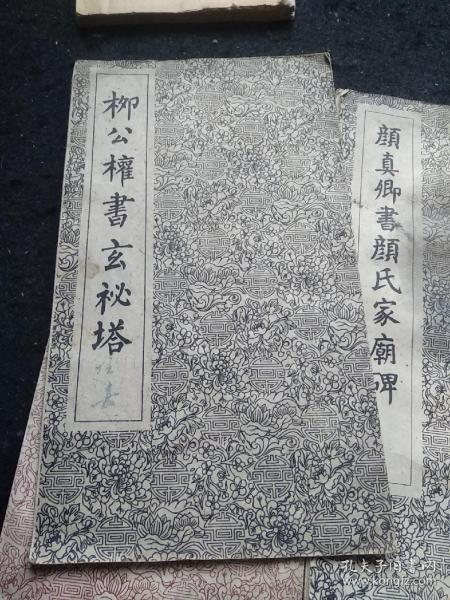 柳公權書玄祕塔
顔真卿書顔氏家廟碑
孔夫子旧书网